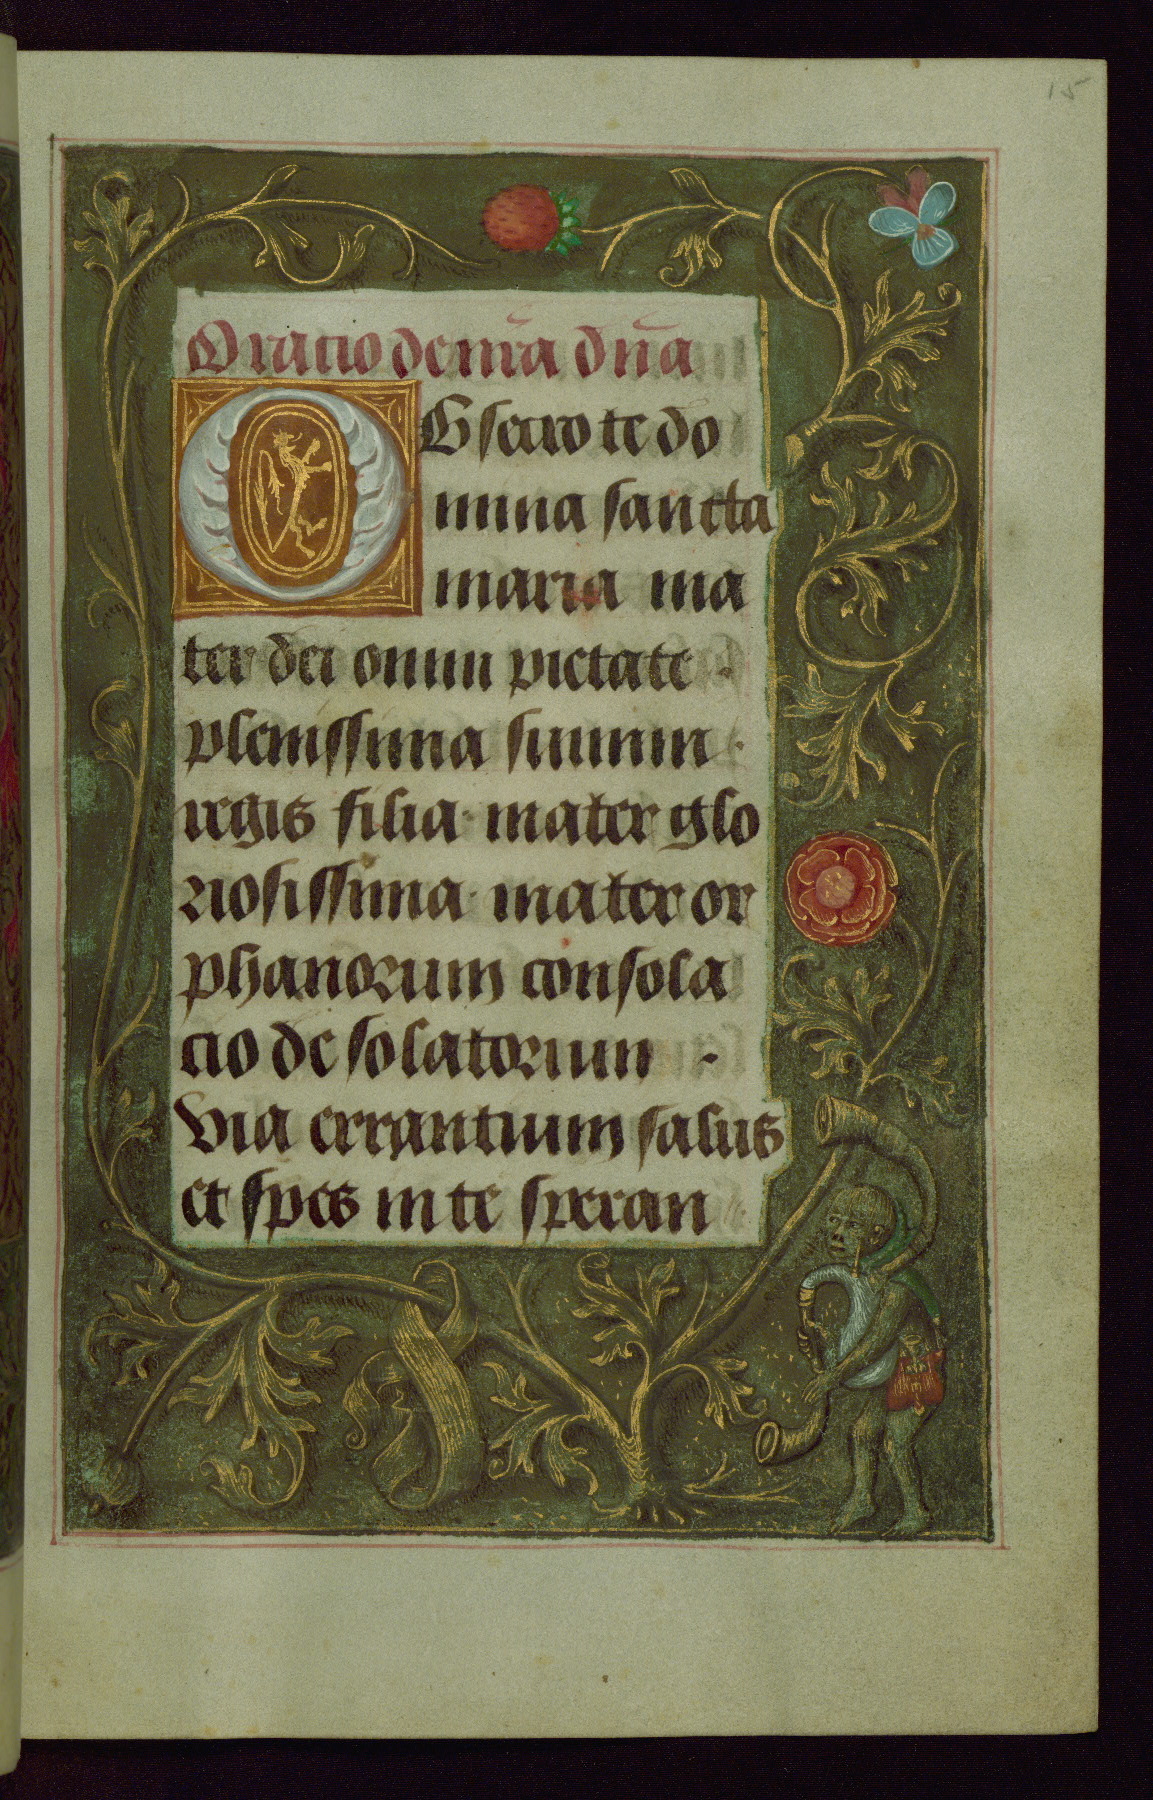 15
Oratio de nr̄a dn̄a
Obsecro te do
mina sancta
maria ma
ter dei omni pietate
plenissima summi
regis filia mater glo
riosissima mater or
phanorum consola
cio desolatorum
Via errantium salus
et spes in te speran